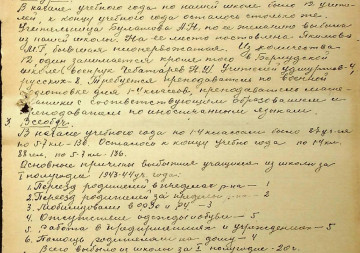 В начале учебного года по нашей школе было 12 учите-
лей, к концу учебного года осталось столько же.
Учительница Булатова А.Н. по
из нашей школы. На ее место поставлена Якимова
М.Г. бывшая пионервожатая. Из количества
12 один занимается кроме того в
школе (военрук Чеботарев Н.У. Учителей удмуртов-4
русских 8. Требуется преподаватель по военной
подготовке для 1-4 классов, преподаватель мате-
матики с соответствующим образованием и
преподаватель по иностранным языкам.
3 Всеобуч.
В начале учебного года по 1-4 классам было 87 уч-ся
по 5-7 кл-136. Осталось к концу учебн года по 1-4 кл.
88 чел, по 5-7 кл-136.
Основные причины выбытия учащихся из школы за
I полугодие 1943-44 уч. года:
1. Переезд родителей в пределах р-на — 1
2. Переезд родителей за пределы — 2
3. Мобилизованы в ФЗО и РУ — 3
4. Отсутствие одежды и обуви — 5
5. Работа в предприятиях и учреждениях — 5
6. Помощь родителям на дому — 4
Всего выбыло из школы за I полугодие - 20 ч.